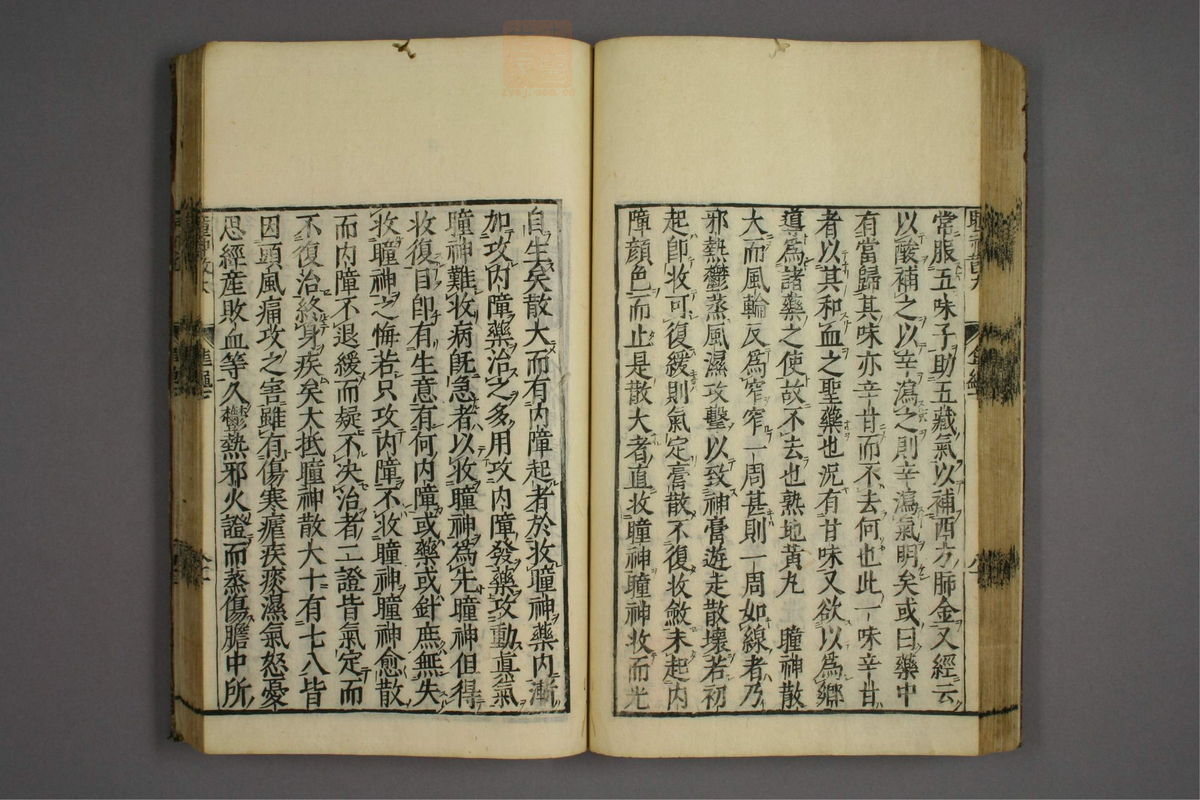 常服五味子助五藏氣以補西方肺金又經云
以酸補之以辛瀉之則辛瀉氣明矣或曰藥中
有當歸其味亦辛甘而不去何也此一味辛甘
者以其和血之聖藥也況有甘味又欲以為鄉
導為諸藥之使故不去也熟地黃丸　瞳神散
大而風輪反為窄窄一周甚則一周如線者乃
邪熱鬱蒸風濕攻擊以致神膏遊走散壞若初
起即收可復緩則氣定膏散不復收斂未起內
障顏色而止是散大者直收瞳神瞳神收而光
自生矣散大而有內障起者於收瞳神藥內漸
加攻內障藥治之多用攻內障發藥攻動真氣
瞳神難收病既急者以收瞳神為先瞳神但得
收復目即有生意有何內障或藥或針庶無失
收瞳神之悔若只攻內障不收瞳神瞳神愈散
而內障不退緩而疑不决治者二證皆氣定而
不復治終身疾矣大抵瞳神散大十有七八皆
因頭風痛攻之害雖有傷寒瘧疾痰濕氣怒憂
思經產敗血等久鬱熱邪火證而蒸傷膽中所